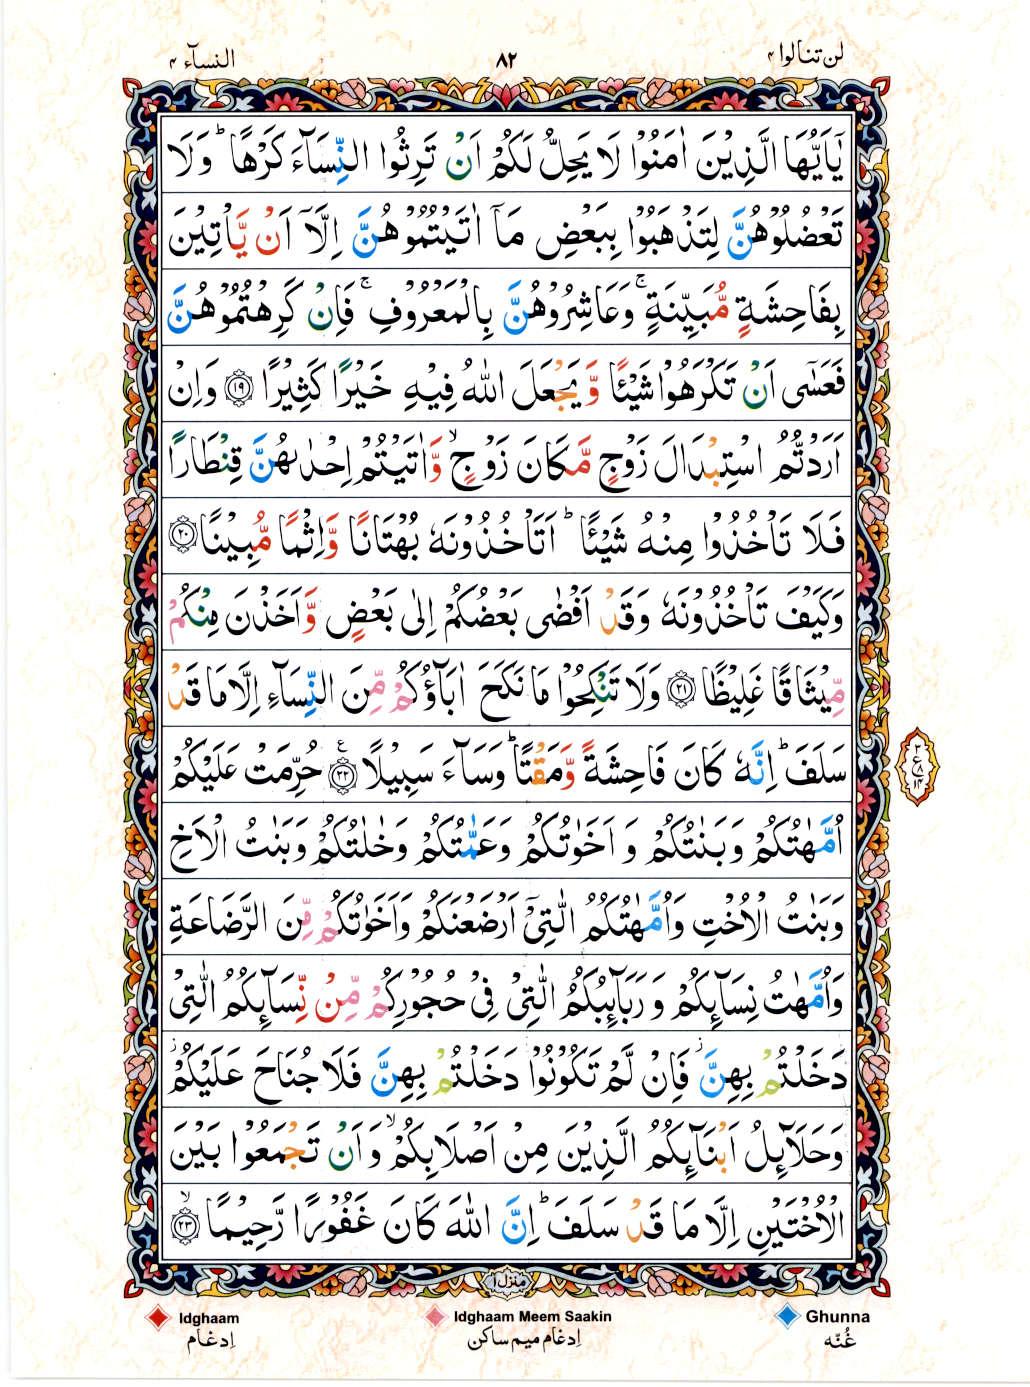 لن تنالوا ۴ ۸۲ النسآء ۴
يٰٓاَيُّهَا الَّذِيْنَ اٰمَنُوْا لَا يَحِلُّ لَكُمْ اَنْ تَرِثُوا النِّسَآءَ كَرْهًا ؕ وَلَا
تَعْضُلُوْهُنَّ لِتَذْهَبُوْا بِبَعْضِ مَآ اٰتَيْتُمُوْهُنَّ اِلَّآ اَنْ يَّاْتِيْنَ
بِفَاحِشَةٍ مُّبَيِّنَةٍ ۚ وَعَاشِرُوْهُنَّ بِالْمَعْرُوْفِ ۚ فَاِنْ كَرِهْتُمُوْهُنَّ
فَعَسٰٓى اَنْ تَكْرَهُوْا شَيْـًٔا وَّيَجْعَلَ اللّٰهُ فِيْهِ خَيْرًا كَثِيْرًا ۝۱۹ وَاِنْ
اَرَدْتُّمُ اسْتِبْدَالَ زَوْجٍ مَّكَانَ زَوْجٍ ۙ وَّاٰتَيْتُمْ اِحْدٰىهُنَّ قِنْطَارًا
فَلَا تَاْخُذُوْا مِنْهُ شَيْـًٔا ؕ اَتَاْخُذُوْنَهٗ بُهْتَانًا وَّاِثْمًا مُّبِيْنًا ۝۲۰
وَكَيْفَ تَاْخُذُوْنَهٗ وَقَدْ اَفْضٰى بَعْضُكُمْ اِلٰى بَعْضٍ وَّاَخَذْنَ مِنْكُمْ
مِّيْثَاقًا غَلِيْظًا ۝۲۱ وَلَا تَنْكِحُوْا مَا نَكَحَ اٰبَآؤُكُمْ مِّنَ النِّسَآءِ اِلَّا مَا قَدْ
سَلَفَ ؕ اِنَّهٗ كَانَ فَاحِشَةً وَّمَقْتًا ؕ وَسَآءَ سَبِيْلًا ۝۲۲ ع حُرِّمَتْ عَلَيْكُمْ
اُمَّهٰتُكُمْ وَبَنٰتُكُمْ وَاَخَوٰتُكُمْ وَعَمّٰتُكُمْ وَخٰلٰتُكُمْ وَبَنٰتُ الْاَخِ
وَبَنٰتُ الْاُخْتِ وَاُمَّهٰتُكُمُ الّٰتِيْٓ اَرْضَعْنَكُمْ وَاَخَوٰتُكُمْ مِّنَ الرَّضَاعَةِ
وَاُمَّهٰتُ نِسَآئِكُمْ وَرَبَآئِبُكُمُ الّٰتِيْ فِيْ حُجُوْرِكُمْ مِّنْ نِّسَآئِكُمُ الّٰتِيْ
دَخَلْتُمْ بِهِنَّ ؗ فَاِنْ لَّمْ تَكُوْنُوْا دَخَلْتُمْ بِهِنَّ فَلَا جُنَاحَ عَلَيْكُمْ ؗ
وَحَلَآئِلُ اَبْنَآئِكُمُ الَّذِيْنَ مِنْ اَصْلَابِكُمْ ۙ وَاَنْ تَجْمَعُوْا بَيْنَ
الْاُخْتَيْنِ اِلَّا مَا قَدْ سَلَفَ ؕ اِنَّ اللّٰهَ كَانَ غَفُوْرًا رَّحِيْمًا ۝۲۳ ۙ
منزل۱
Idghaam Idghaam Meem Saakin Ghunna
اِدغام اِدغام میم ساکن غُنّه